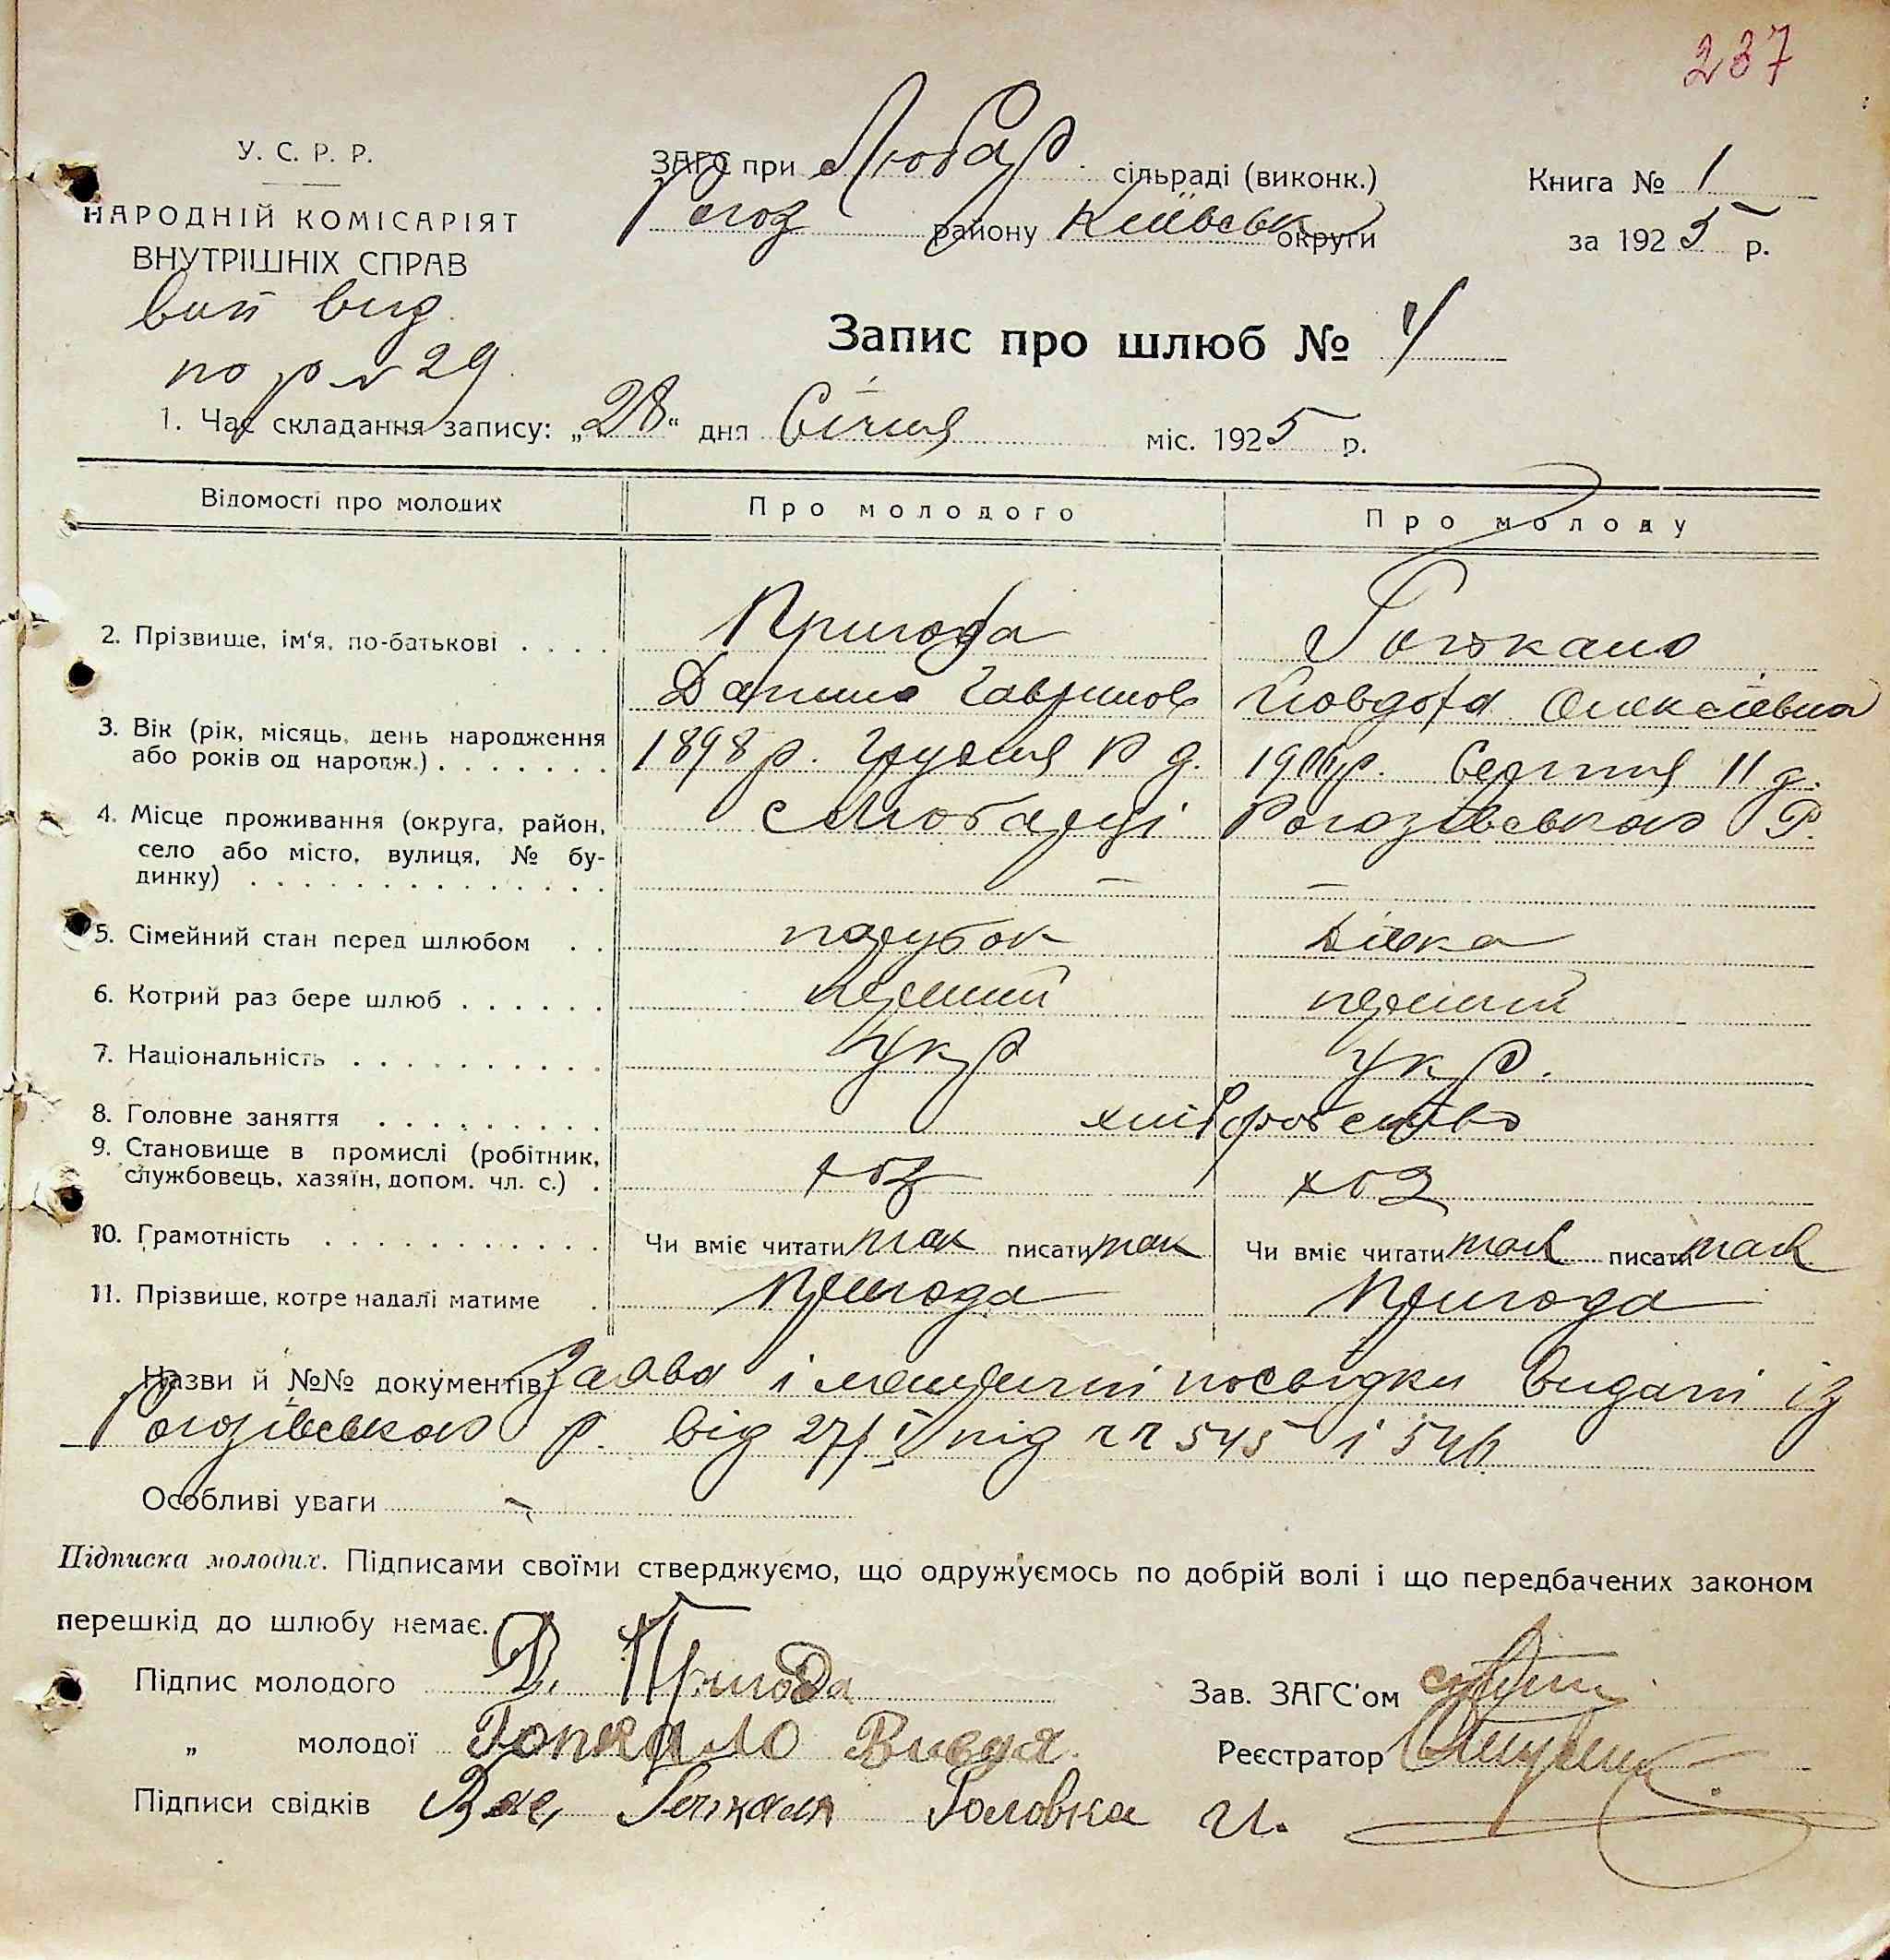 237
У. С. Р. Р.
НАРОДНІЙ КОМІСАРІЯТ
ВНУТРІШНІХ СПРАВ
ЗАГС при Любар. сільраді (виконк.)
Рогоз району Київськ округи
Книга № 1
за 1925 р.
вид.
по р № 29.
Запис про шлюб № 4
1. Час складання запису: „28“ дня Січня міс. 1925 р.
Відомості про молодих Про молодого Про молоду
2. Прізвище, ім'я, по-батькові . . . . Пригода
Данило Гаврилов Йовдоха Олексіевна
3. Вік (рік, місяць, день народження
або років од народж.) . . . . . . . 1898 р. Грудня д. Серпня 11 д.
4. Місце проживання (округа, район,
село або місто, вулиця, № бу-
динку) . . . . . . . . . . . . . . с Любарці Рогозівського Р.
5. Сімейний стан перед шлюбом . . парубок дівка
6. Котрий раз бере шлюб . . . . . . перший перший
7. Національність . . . . . . . . . . укр укр.
8. Головне заняття . . . . . . . . . хліборобство
9. Становище в промислі (робітник,
службовець, хазяїн, допом. чл. с.) . хоз хоз
10. Грамотність . . . . . . . . . . . Чи вміє читати так писати так Чи вміє читати так писати так
11. Прізвище, котре надалі матиме . Пригода Пригода
Назви й №№ документів Заява і посвідки видані із
Рогозівського р. від 27/I під 545 і 546
Особливі уваги –
Підписка молодих. Підписами своїми стверджуємо, що одружуємось по добрій волі і що передбачених законом
перешкід до шлюбу немає.
Підпис молодого Д. Пригода
„ молодої Гопкало Вивдя.
Підписи свідків Гопкало Головка И.
Зав. ЗАГС'ом
Реєстратор